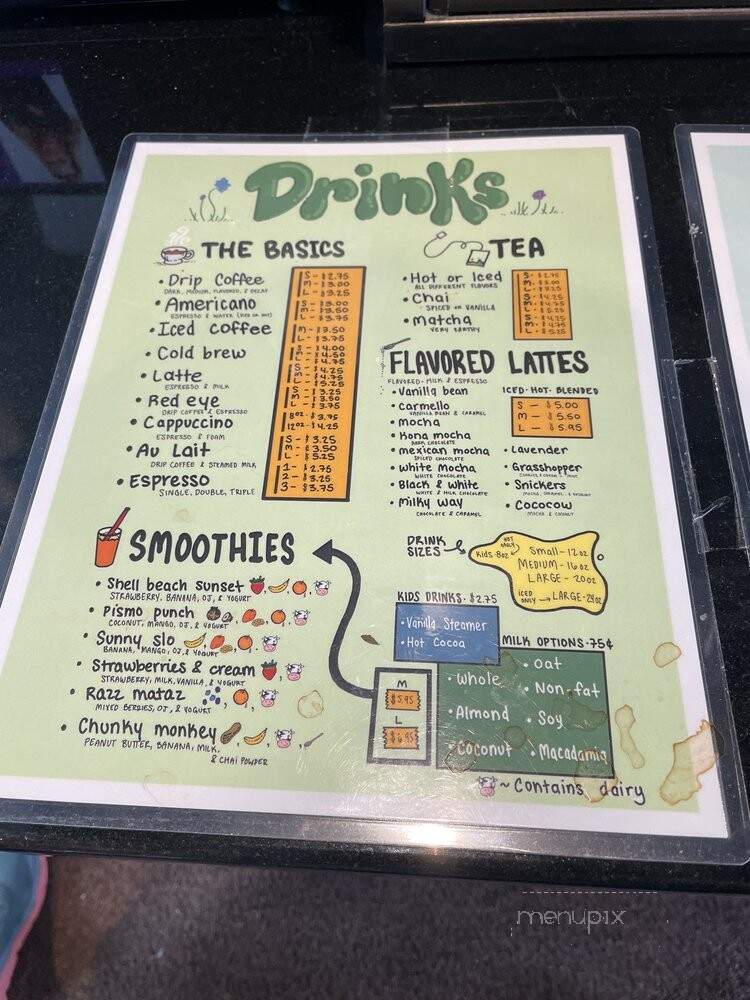 Drinks
THE BASICS
• Drip Coffee
DARK, MEDIUM, FLAVORED, & DECAF
S - $2.75
M - $3.00
L - $3.25
• Americano
ESPRESSO & WATER (HOT OR ICE)
S - $3.00
M - $3.50
L - $3.75
• Iced coffee
M - $3.50
L - $3.75
• Cold brew
S - $4.00
M - $4.50
L - $4.75
• Latte
ESPRESSO & MILK
S - $4.25
M - $4.75
L - $5.25
• Red eye
DRIP COFFEE & ESPRESSO
S - $3.25
M - $3.50
L - $3.75
• Cappuccino
ESPRESSO & FOAM
8oz - $3.75
12oz - $4.25
• Au Lait
DRIP COFFEE & STEAMED MILK
S - $3.25
M - $3.50
L - $5.25
• Espresso
SINGLE, DOUBLE, TRIPLE
1 - $2.75
2 - $3.25
3 - $3.75
TEA
• Hot or Iced
ALL DIFFERENT FLAVORS
S - $2.75
M - $3.00
L - $3.25
• Chai
SPICED OR VANILLA
S - $4.25
M - $4.75
L - $5.25
• Matcha
VERY EARTHY
S - $4.25
M - $4.75
L - $5.25
FLAVORED LATTES
FLAVORED - MILK & ESPRESSO
ICED · HOT · BLENDED
S - $5.00
M - $5.50
L - $5.95
• Vanilla bean
• Carmello
VANILLA BEAN & CARAMEL
• mocha
• Kona mocha
DARK CHOCOLATE
• mexican mocha
SPICED CHOCOLATE
• White Mocha
WHITE CHOCOLATE
• Black & White
WHITE & MILK CHOCOLATE
• Milky way
CHOCOLATE & CARAMEL
• Lavender
• Grasshopper
• Snickers
MOCHA, CARAMEL, & HAZELNUT
• Cococow
MOCHA & COCONUT
SMOOTHIES
• Shell beach sunset
STRAWBERRY, BANANA, OJ, & YOGURT
• Pismo punch
COCONUT, MANGO, OJ, & YOGURT
• Sunny slo
BANANA, MANGO, OJ, & YOGURT
• Strawberries & cream
STRAWBERRY, MILK, VANILLA, & YOGURT
• Razz mataz
MIXED BERRIES, OJ, & YOGURT
• Chunky monkey
PEANUT BUTTER, BANANA, MILK,
& CHAI POWDER
M
$5.95
L
$6.95
DRINK
SIZES
HOT ONLY
Kids-8oz
Small-12oz
MEDIUM-16oz
LARGE-20oz
ICED ONLY → LARGE-24oz
KIDS DRINKS · $2.75
• Vanilla Steamer
• Hot Cocoa
MILK OPTIONS · 75¢
• Whole
• Almond
• Coconut
• Oat
• Non-fat
• Soy
• Macadamia
~ Contains dairy
menupix